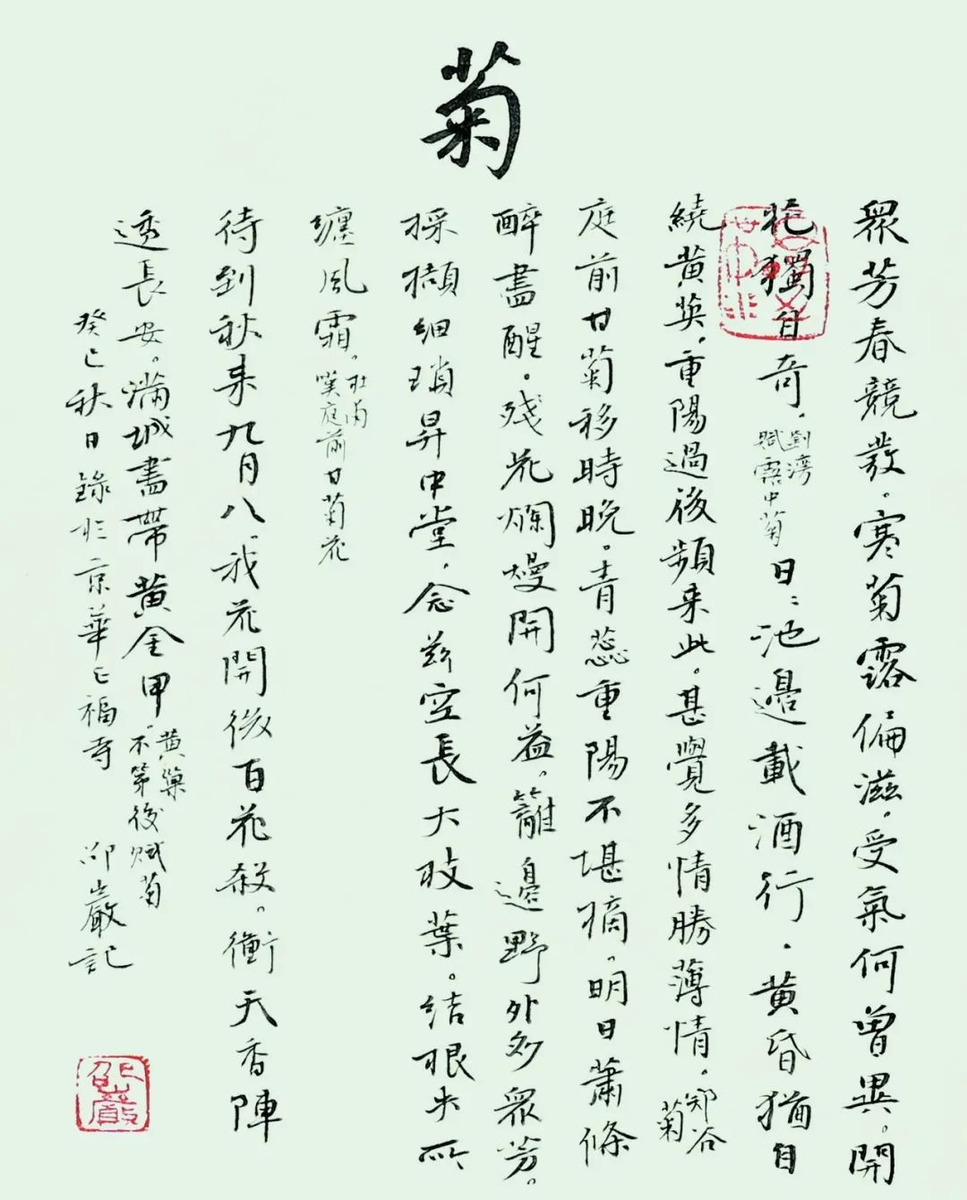 菊
眾芳春競發。寒菊露偏滋。受氣何曾異。開
花獨自奇。劉灣賦雲中菊 日日池邊載酒行。黃昏猶自
繞黃英。重陽過後頻來此。甚覺多情勝薄情。鄭谷菊
庭前甘菊移時晚。青蕊重陽不堪摘。明日蕭條
醉盡醒。殘花爛熳開何益。籬邊野外多眾芳。
採擷細瑣昇中堂。念茲空長大枝葉。結根失所
纏風霜。杜甫嘆庭前甘菊花
待到秋來九月八。我花開後百花殺。衝天香陣
透長安。滿城盡帶黃金甲。黃巢不第後賦菊
癸巳秋日錄於京華七福寺 邵巖記
邵巖